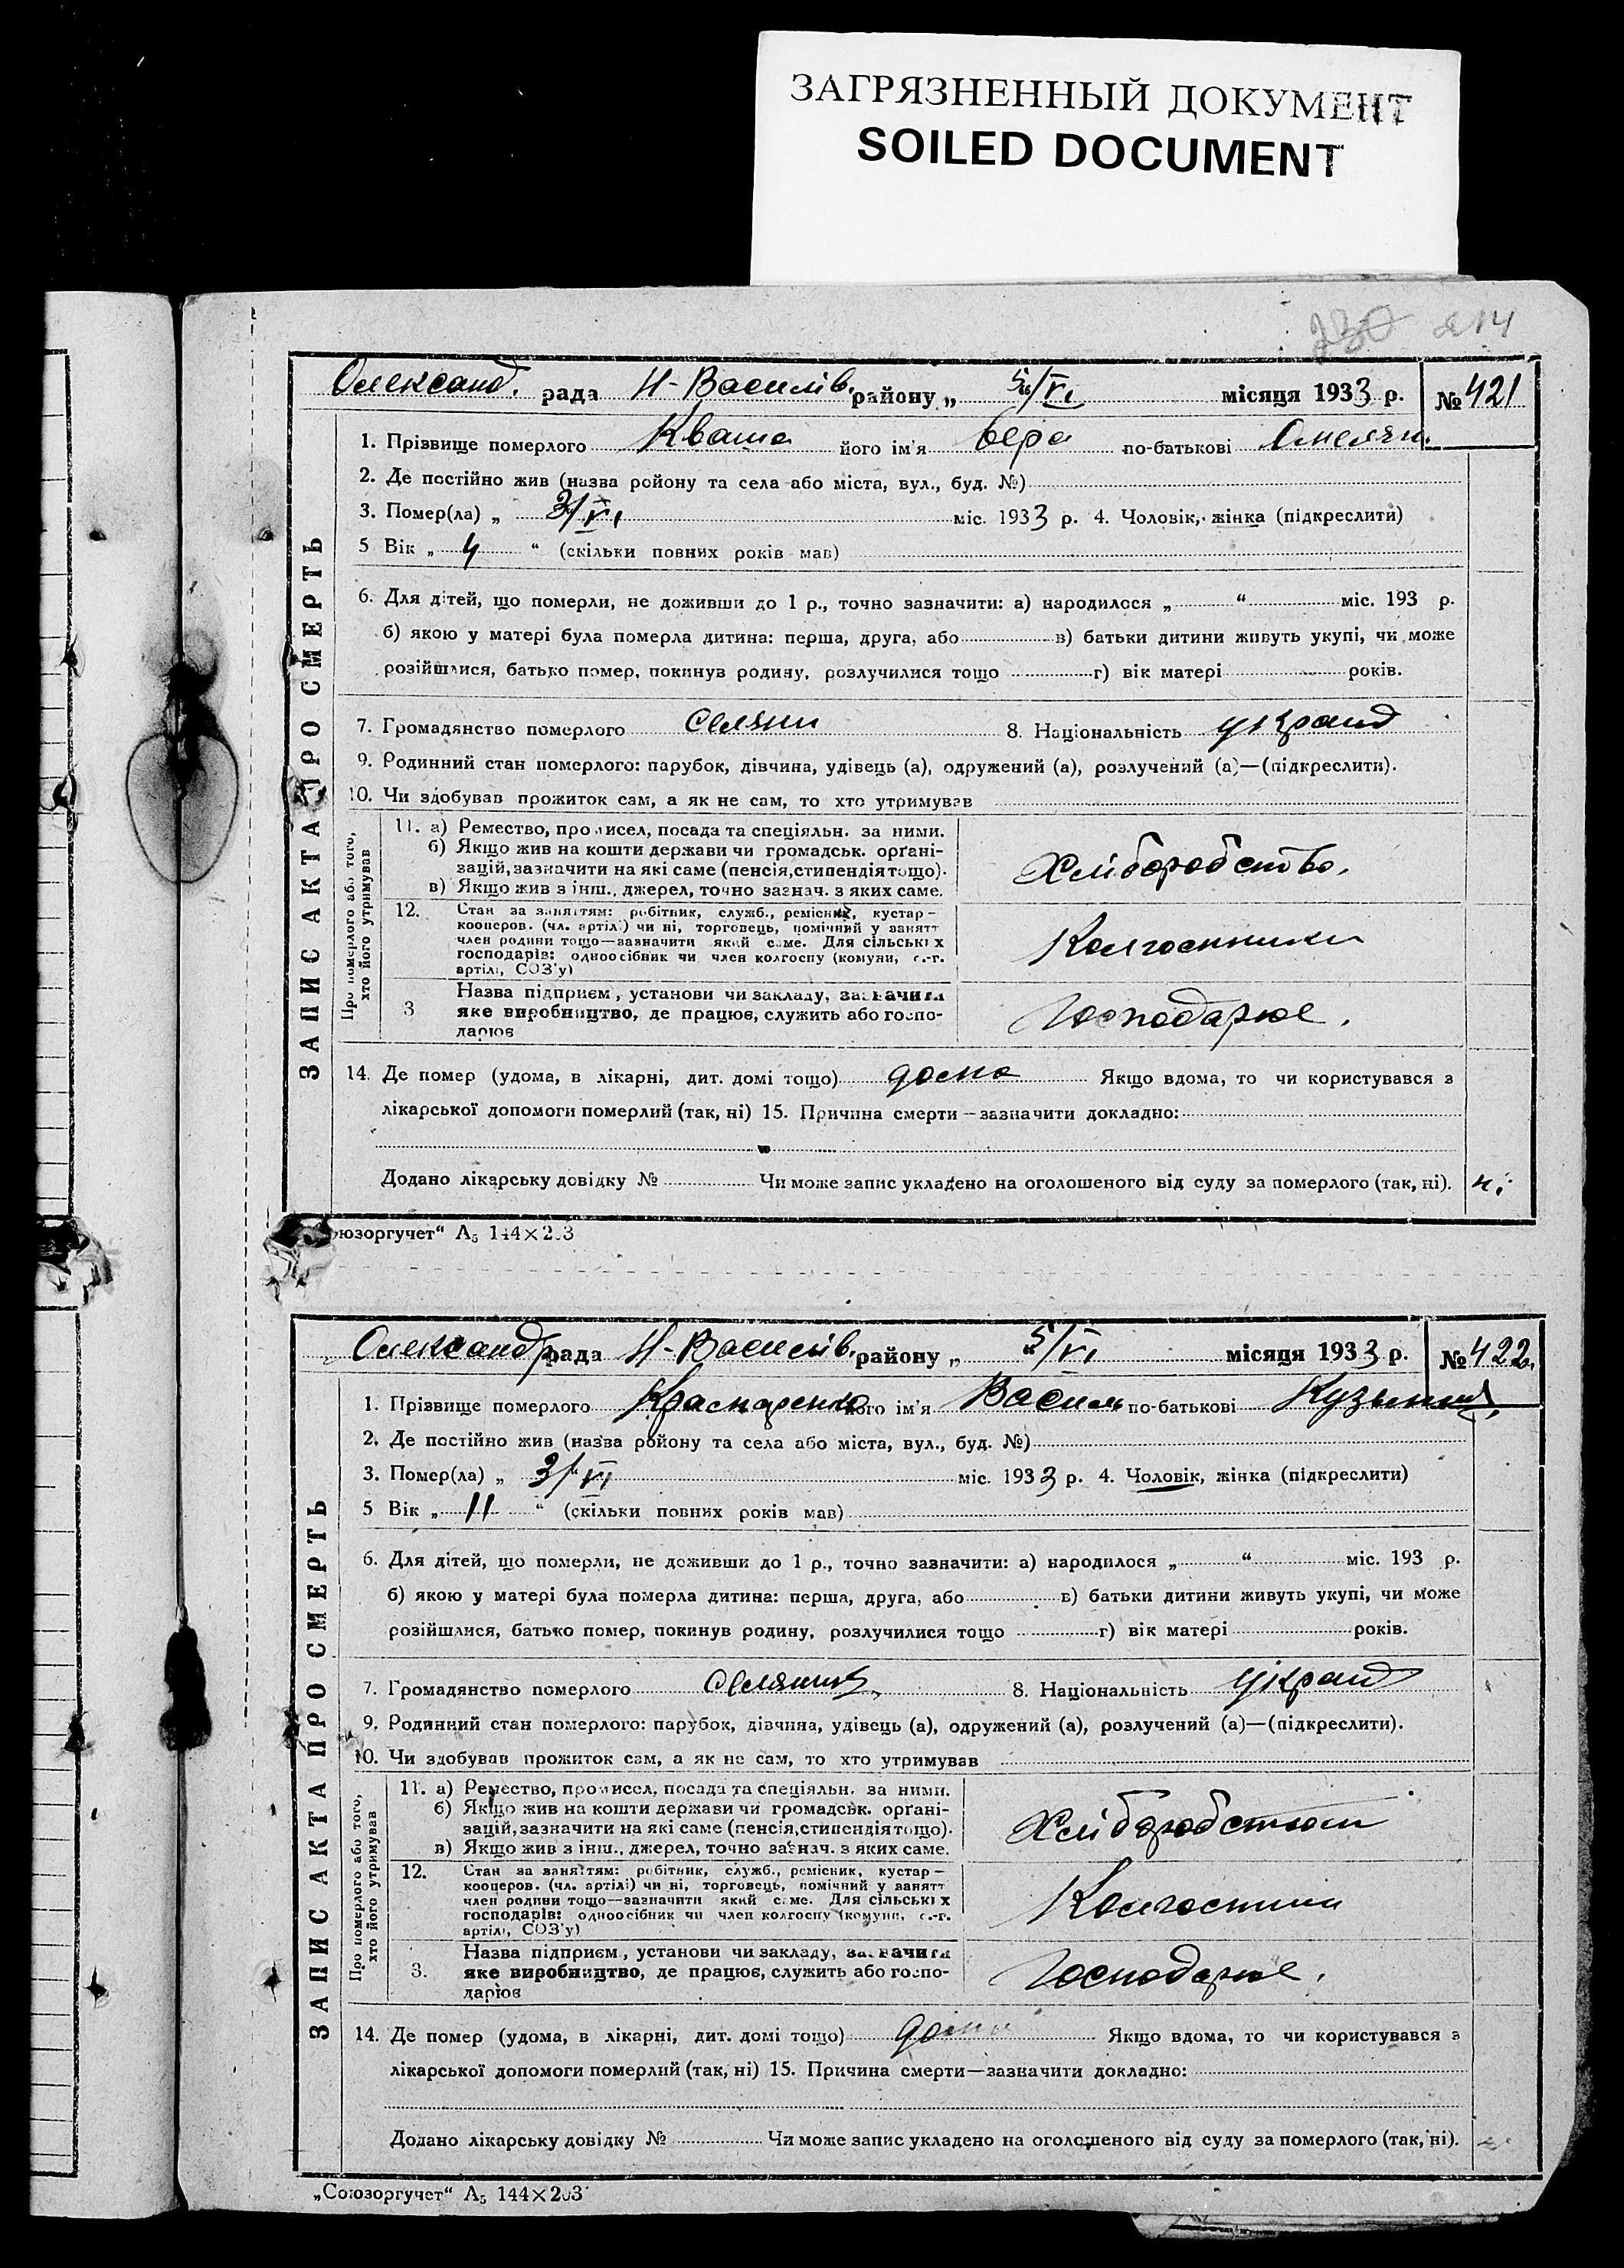 ЗАГРЯЗНЕННЫЙ ДОКУМЕНТ
SOILED DOCUMENT
230 214
Олександ. рада Н-Василів. району „ 5/VI місяця 1933 р. № 421
ЗАПИС АКТА ПРО СМЕРТЬ
1. Прізвище померлого Кваша його ім'я Вера по-батькові Омелян.
2. Де постійно жив (назва ройону та села або міста, вул., буд. №)
3. Помер(ла) „ 3/VI міс. 1933 р. 4. Чоловік, жінка (підкреслити)
5 Вік „ 4 “ (скільки повних років мав)
6. Для дітей, що померли, не доживши до 1 р., точно зазначити: а) народилося „ “ міс. 193 р.
б) якою у матері була померла дитина: перша, друга, або в) батьки дитини живуть укупі, чи може
розійшлися, батько помер, покинув родину, розлучилися тощо г) вік матері років.
7. Громадянство померлого Селяни 8. Національність Україн
9. Родинний стан померлого: парубок, дівчина, удівець (а), одружений (а), розлучений (а)—(підкреслити).
10. Чи здобував прожиток сам, а як не сам, то хто утримував
Про померлого або того,
хто його утримував
11. а) Ремество, промисел, посада та спеціяльн. за ними.
б) Якщо жив на кошти держави чи громадськ. орґані-
зацій, зазначити на які саме (пенсія, стипендія тощо).
в) Якщо жив з інш., джерел, точно зазнач. з яких саме.
Хліборобство.
12. Стан за заняттям: робітник, служб., ремісник, кустар-
кооперов. (чл. артілі) чи ні, торговець, помічний у занятт
член родини тощо—зазначити який саме. Для сільських
господарів: одноосібник чи член колгоспу (комуни, с.-г.
артілі, СОЗ'у)
Колгоспники
3 Назва підприєм, установи чи закладу, зазначити
яке виробництво, де працює, служить або госпо-
дарює
Господарює.
14. Де помер (удома, в лікарні, дит. домі тощо) дома Якщо вдома, то чи користувався з
лікарської допомоги померлий (так, ні) 15. Причина смерти—зазначити докладно:
Додано лікарську довідку № Чи може запис укладено на оголошеного від суду за померлого (так, ні). ні
юзоргучет“ А5 144×203
Олександр рада Н-Василів. району „ 5/VI місяця 1933 р. № 422
ЗАПИС АКТА ПРО СМЕРТЬ
1. Прізвище померлого його ім'я Василь по-батькові Кузьмич
2. Де постійно жив (назва ройону та села або міста, вул., буд. №)
3. Помер(ла) „ 3/VI міс. 1933 р. 4. Чоловік, жінка (підкреслити)
5 Вік „ 11 “ (скільки повних років мав)
6. Для дітей, що померли, не доживши до 1 р., точно зазначити: а) народилося „ “ міс. 193 р.
б) якою у матері була померла дитина: перша, друга, або в) батьки дитини живуть укупі, чи може
розійшлися, батько помер, покинув родину, розлучилися тощо г) вік матері років.
7. Громадянство померлого Селянин 8. Національність Україн
9. Родинний стан померлого: парубок, дівчина, удівець (а), одружений (а), розлучений (а)—(підкреслити).
10. Чи здобував прожиток сам, а як не сам, то хто утримував
Про померлого або того,
хто його утримував
11. а) Ремество, промисел, посада та спеціяльн. за ними.
б) Якщо жив на кошти держави чи громадськ. орґані-
зацій, зазначити на які саме (пенсія, стипендія тощо).
в) Якщо жив з інш., джерел, точно зазнач. з яких саме.
12. Стан за заняттям: робітник, служб., ремісник, кустар-
кооперов. (чл. артілі) чи ні, торговець, помічний у занятт
член родини тощо—зазначити який саме. Для сільських
господарів: одноосібник чи член колгоспу (комуни, с.-г.
артілі, СОЗ'у)
Колгоспник
3. Назва підприєм, установи чи закладу, зазначити
яке виробництво, де працює, служить або госпо-
дарює
Господарює.
14. Де помер (удома, в лікарні, дит. домі тощо) дома Якщо вдома, то чи користувався з
лікарської допомоги померлий (так, ні) 15. Причина смерти—зазначити докладно:
Додано лікарську довідку № Чи може запис укладено на оголошеного від суду за померлого (так, ні).
„Союзоргучет“ А5 144×203